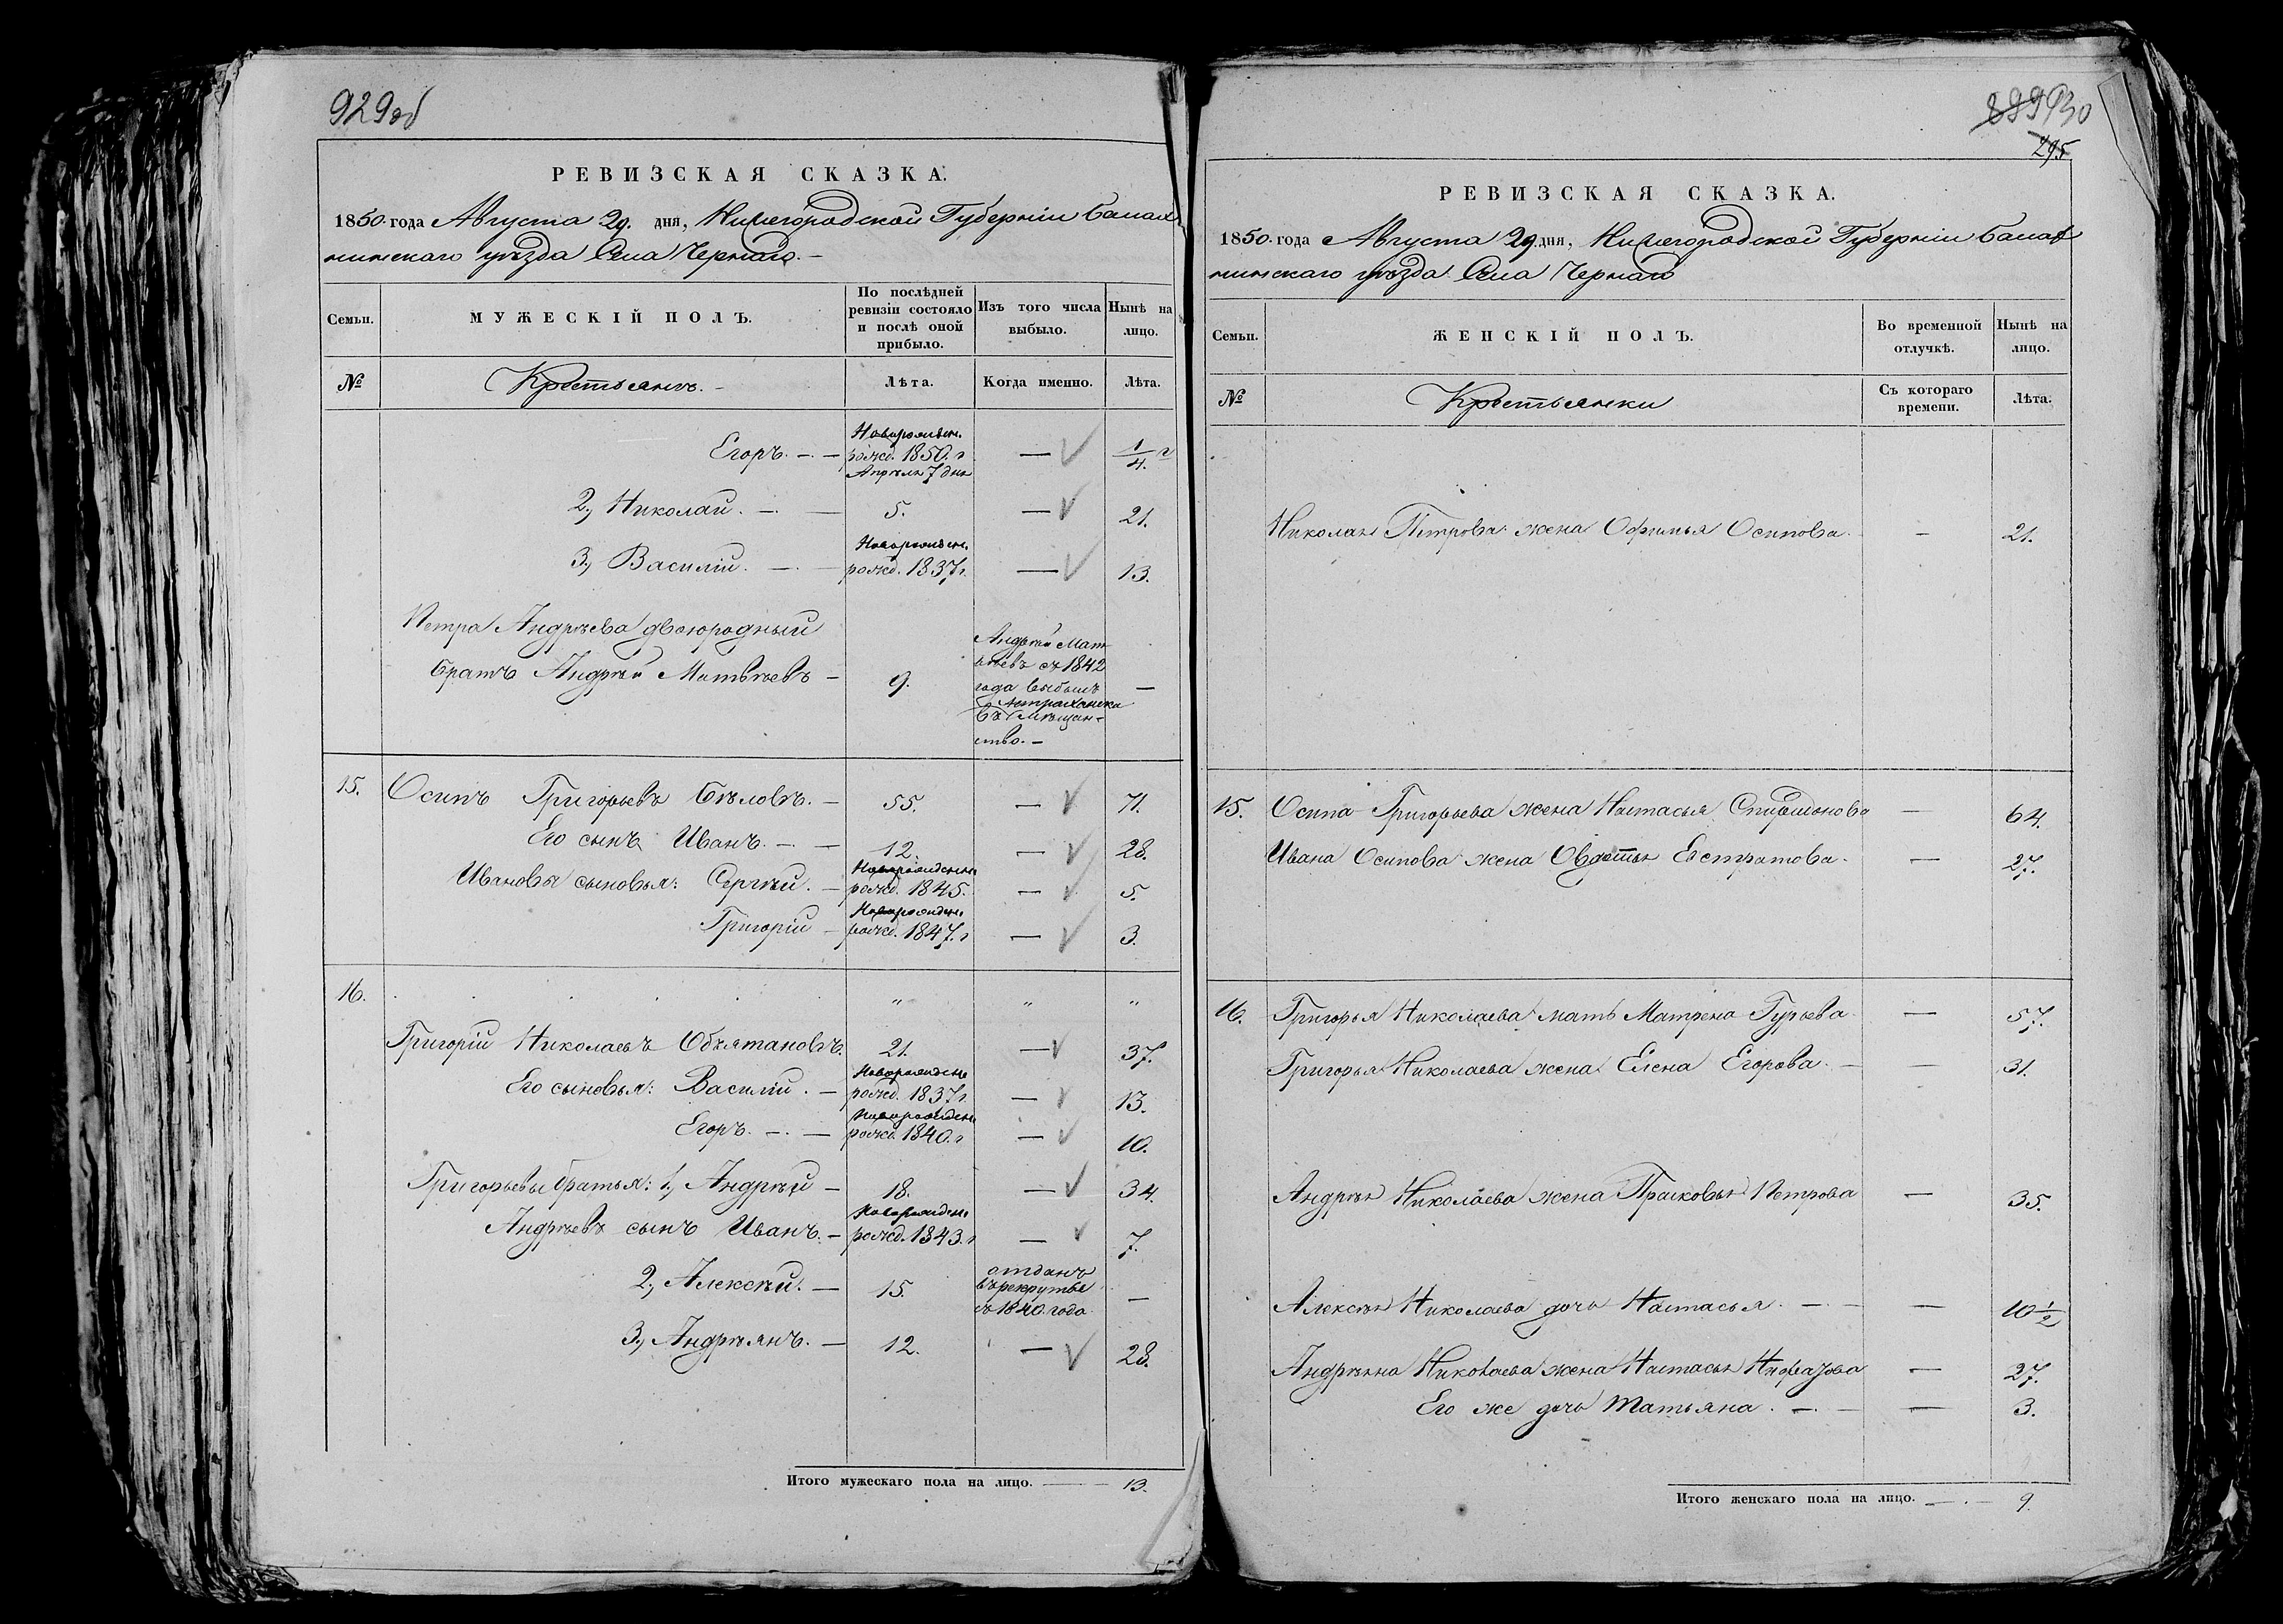 929об
РЕВИЗСКАЯ СКАЗКА.
1850 года Августа 29. дня, Нижегородской Губерніи Балах
нинскаго уѣзда Села Чернаго. –
Семьи.
МУЖЕСКІЙ ПОЛЪ.
По послѣдней ревизіи состояло и послѣ оной прибыло.
Изъ того числа выбыло.
Нынѣ на лицо.
№ Крестьянъ. – Лѣта. Когда именно. Лѣта.
Егоръ. – – Новорожден. рожд. 1850. г Апрѣля 7 дня — 1/4 г
2., Николай. – — 5. — 21.
3., Василій. – — Новорожден. рожд. 1837 г. — 13.
Петра Андрѣева двоюродный
братъ Андрѣй Матвѣевъ – 9. Андрѣй Мат
вѣевъ съ 1842
года выбылъ
въ Астраханска
мѣщан-
ство. – —
15. Осипъ Григорьевъ Бѣловъ. – 55. — 71.
Его сынъ Иванъ. – — 12. — 28.
Ивановы сыновья: Сергѣй. – Новорожденн. рожд. 1845. — 5.
Григорій – Новорожден. рожд. 1847. г — 3.
16. " " "
Григорій Николаевъ Объятановъ. 21. — 37.
Его сыновья: Василій. – Новорожден. рожд. 1837 г. — 13.
Егоръ. – — Новорожден. рожд. 1840. г — 10.
Григорьевы братья: 1., Андрѣй – 18. — 34.
Андрѣевъ сынъ Иванъ. – Новорожден. рожд. 1843. г — 7.
2., Алексѣй. – 15. отданъ
въ рекруты
въ 1840. года —
3., Андрѣянъ. – 12. — 28.
Итого мужескаго пола на лицо. — 13.
899 930
295
РЕВИЗСКАЯ СКАЗКА.
1850. года Августа 29 дня, Нижегородской Губерніи Балах
нинскаго уѣзда Села Чернаго
Семьи.
ЖЕНСКІЙ ПОЛЪ.
Во временной отлучкѣ.
Нынѣ на лицо.
№ Крестьянки Съ котораго времени. Лѣта.
Николая Петрова жена Офимья Осипова. – 21.
15. Осипа Григорьева жена Настасья Спиридонова — 64.
Ивана Осипова жена Овдотья Евстратова. — 27.
16. Григорья Николаева мать Матрена Гурьева — 57.
Григорья Николаева жена Елена Егорова. – — 31.
Андрѣя Николаева жена Прасковья Петрова — 35.
Алексѣя Николаева дочь Настасья. – — 10 1/2
Андрѣяна Николаева жена Настасья — 27.
Его же дочь Татьяна. – — 3.
Итого женскаго пола на лицо. — 9.